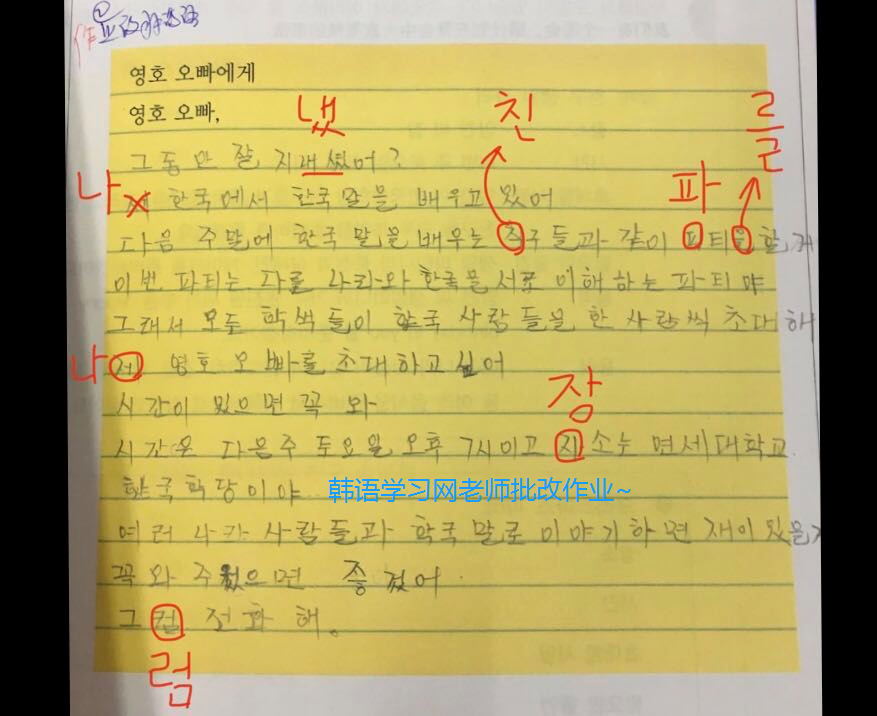 영호 오빠에게
영호 오빠,
냈 친 를
그동안 잘 지내셨어?
나 한국에서 한국말을 배우고 있어
파
다음 주말에 한국 말을 배우는 들과 같이 할
이번 파티는 다를 나라와 한국을 서로 이해하는 파티야
그래서 모든 학색들이 한국 사람들을 한 사람씩 초대해
나 제 영호 오빠를 초대하고 싶어
시간이 있으면 꼭 와
장
시간은 다음주 토요일 오후 7시이고 자소는 면세대학교
한국학당이야
韩语学习网老师批改作业~
여러 나라 사람들과 한국말로 이야기하면
꼭 와 주었으면 좋겠어.
그컴 전화해。
럼